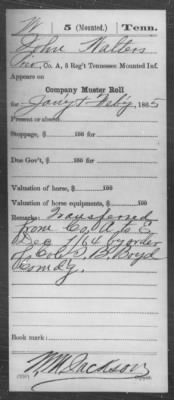 W | 5 (Mounted.) | Tenn.
John Walters
Co. A, 5 Reg't Tennessee Mounted Inf.
Appears on
Company Muster Roll
for Jany & Feby, 1865
Present or absent
Stoppage, $ 100 for
Due Gov't, $ 100 for
Valuation of horse, $ 100
Valuation of horse equipments, $ 100
Remarks: Transferred
from Co. to
Dec 1/64 by order
of Col. S. B. Boyd
Comdg.
Book mark:
Jackson
Copyist.